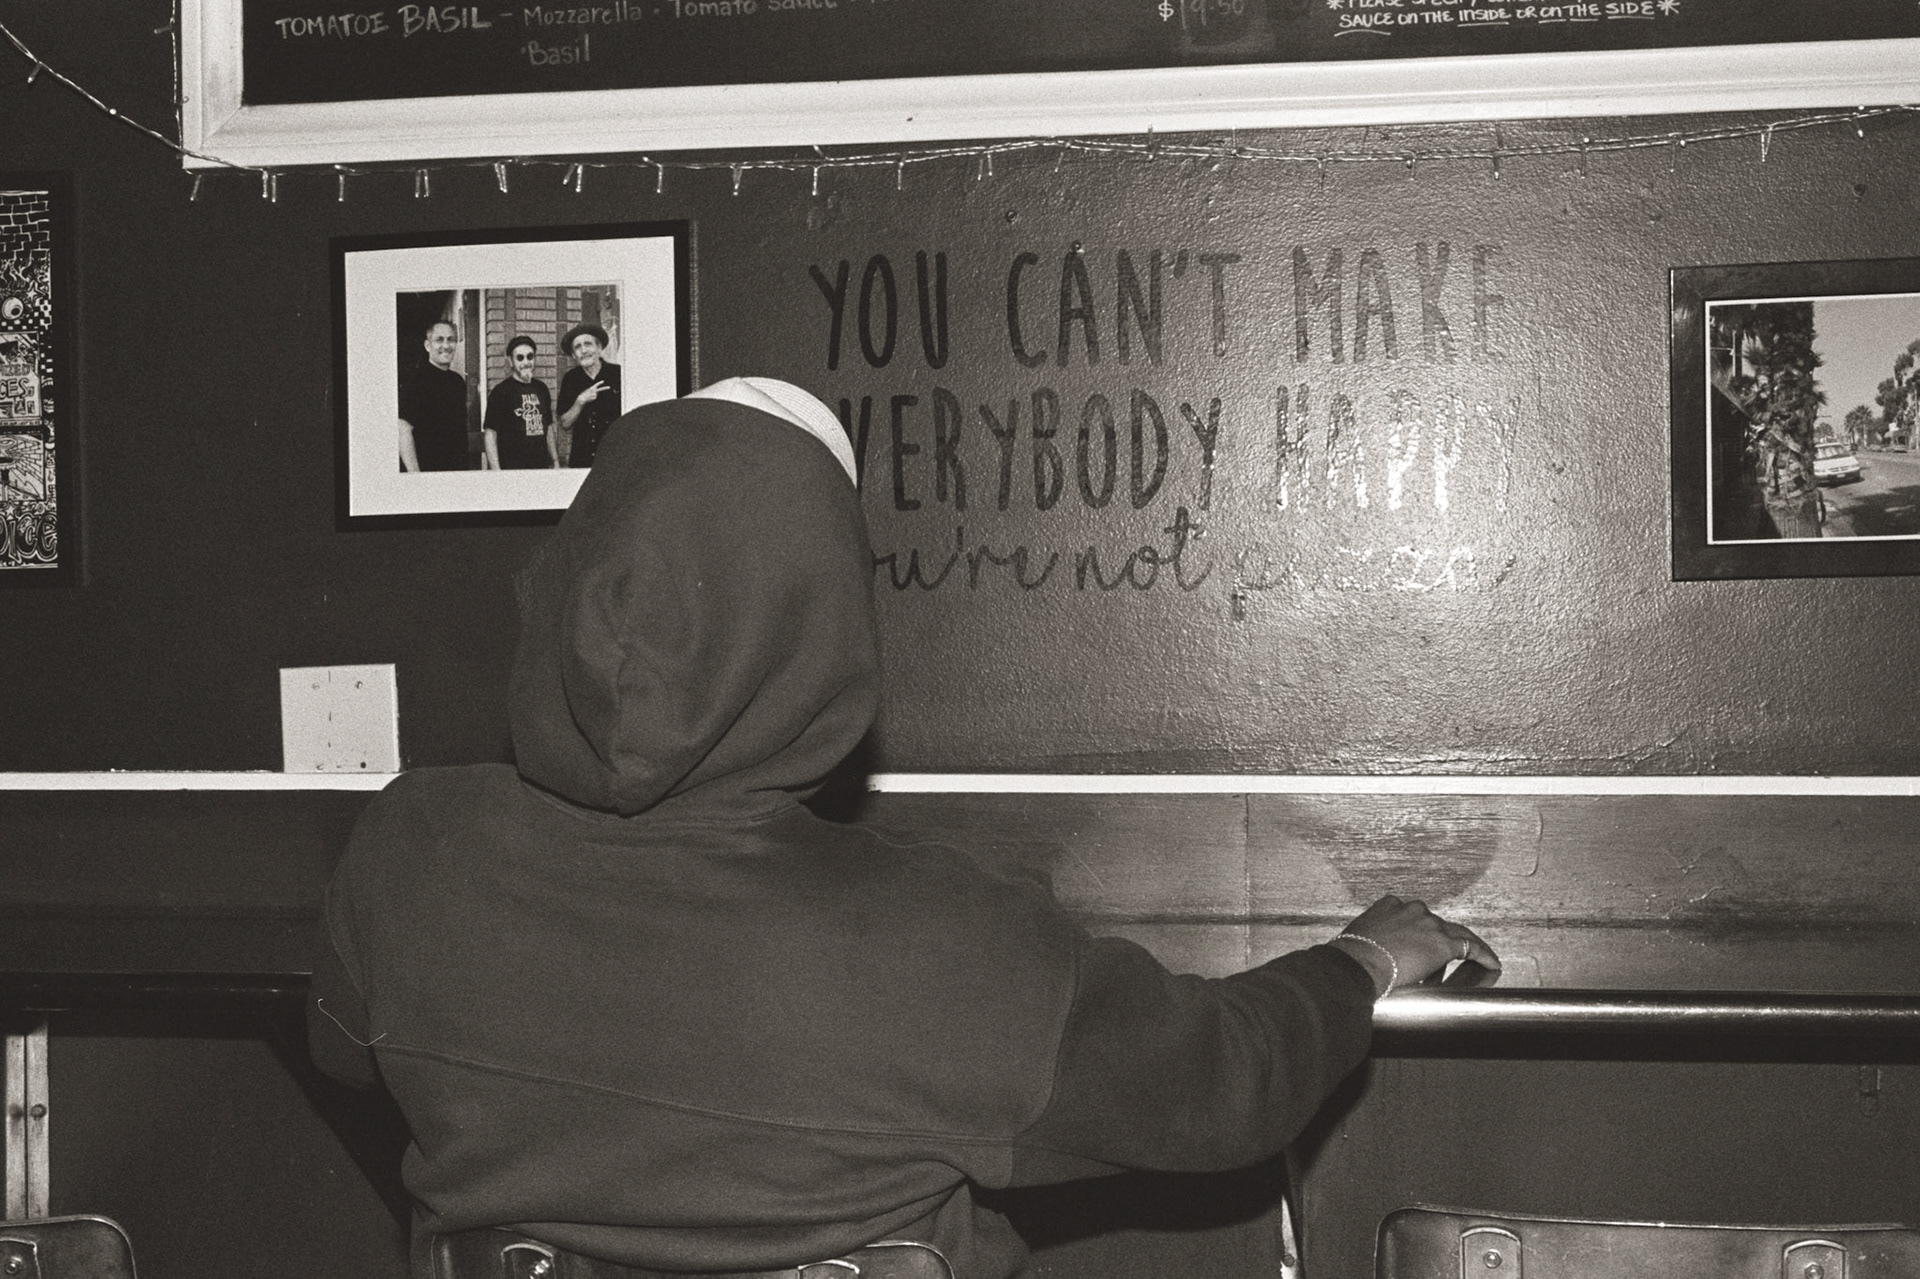 TOMATOE BASIL - Mozzarella · Tomato Sauce
·Basil
$19.50
*PLEASE SPECIFY
SAUCE ON THE INSIDE OR ON THE SIDE*
YOU CAN'T MAKE
VERYBODY HAPPY
ou're not pizza